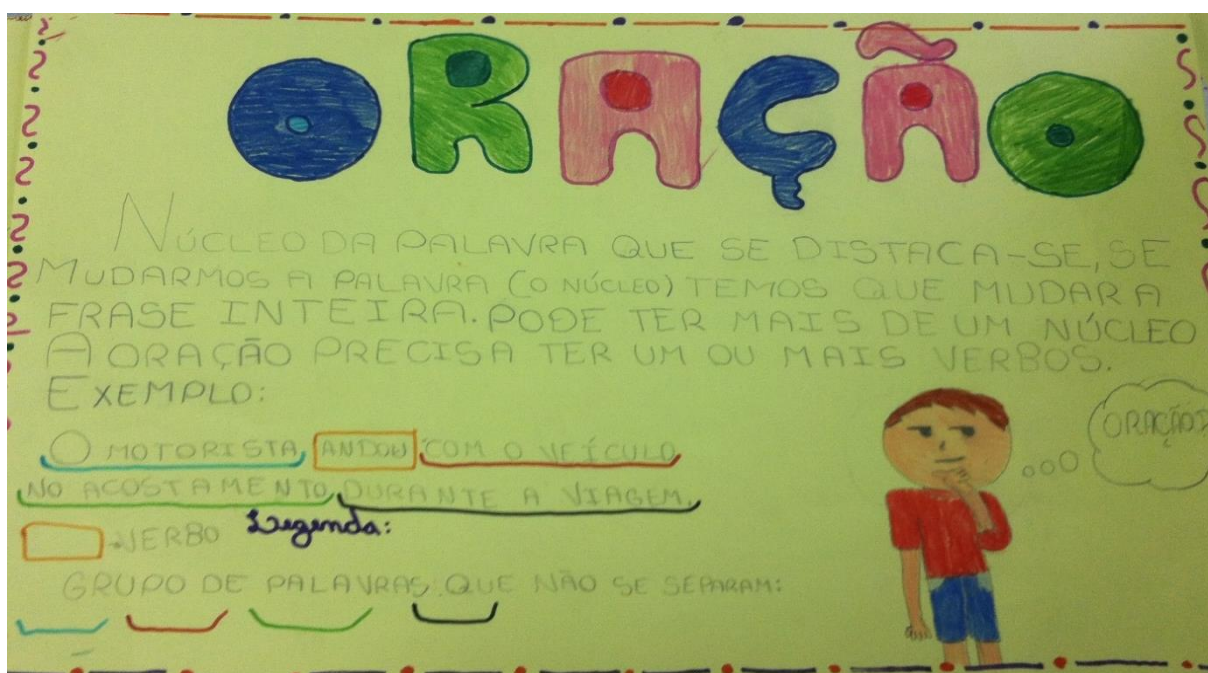 ORAÇÃO
NÚCLEO DA PALAVRA QUE SE DISTACA-SE, SE
MUDARMOS A PALAVRA (O NÚCLEO) TEMOS QUE MUDAR A
FRASE INTEIRA. PODE TER MAIS DE UM NÚCLEO
A ORAÇÃO PRECISA TER UM OU MAIS VERBOS.
EXEMPLO:
O MOTORISTA ANDOU COM O VEÍCULO
NO ACOSTAMENTO DURANTE A VIAGEM.
VERBO Legenda:
GRUPO DE PALAVRAS QUE NÃO SE SEPARAM:
ORAÇÃO?